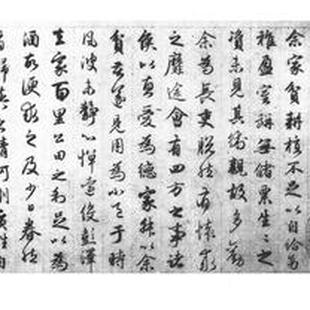 余家貧耕植不足以自給幼
稚盈室缾無儲粟生生之
資未見其術親故多勸
余為長吏脫然有懷求
之靡途會有四方之事諸
侯以惠愛為德家叔以余
貧苦遂見用為小邑于時
風波未靜心憚遠役彭澤
去家百里公田之利足以為
酒故便求之及少日眷然
有歸之情何則質性自